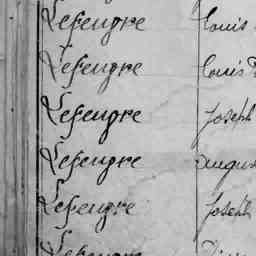 Lefeugre Louis
Lefeugre Louis
Lefeugre Joseph
Lefeugre Augus
Lefeugre Joseph